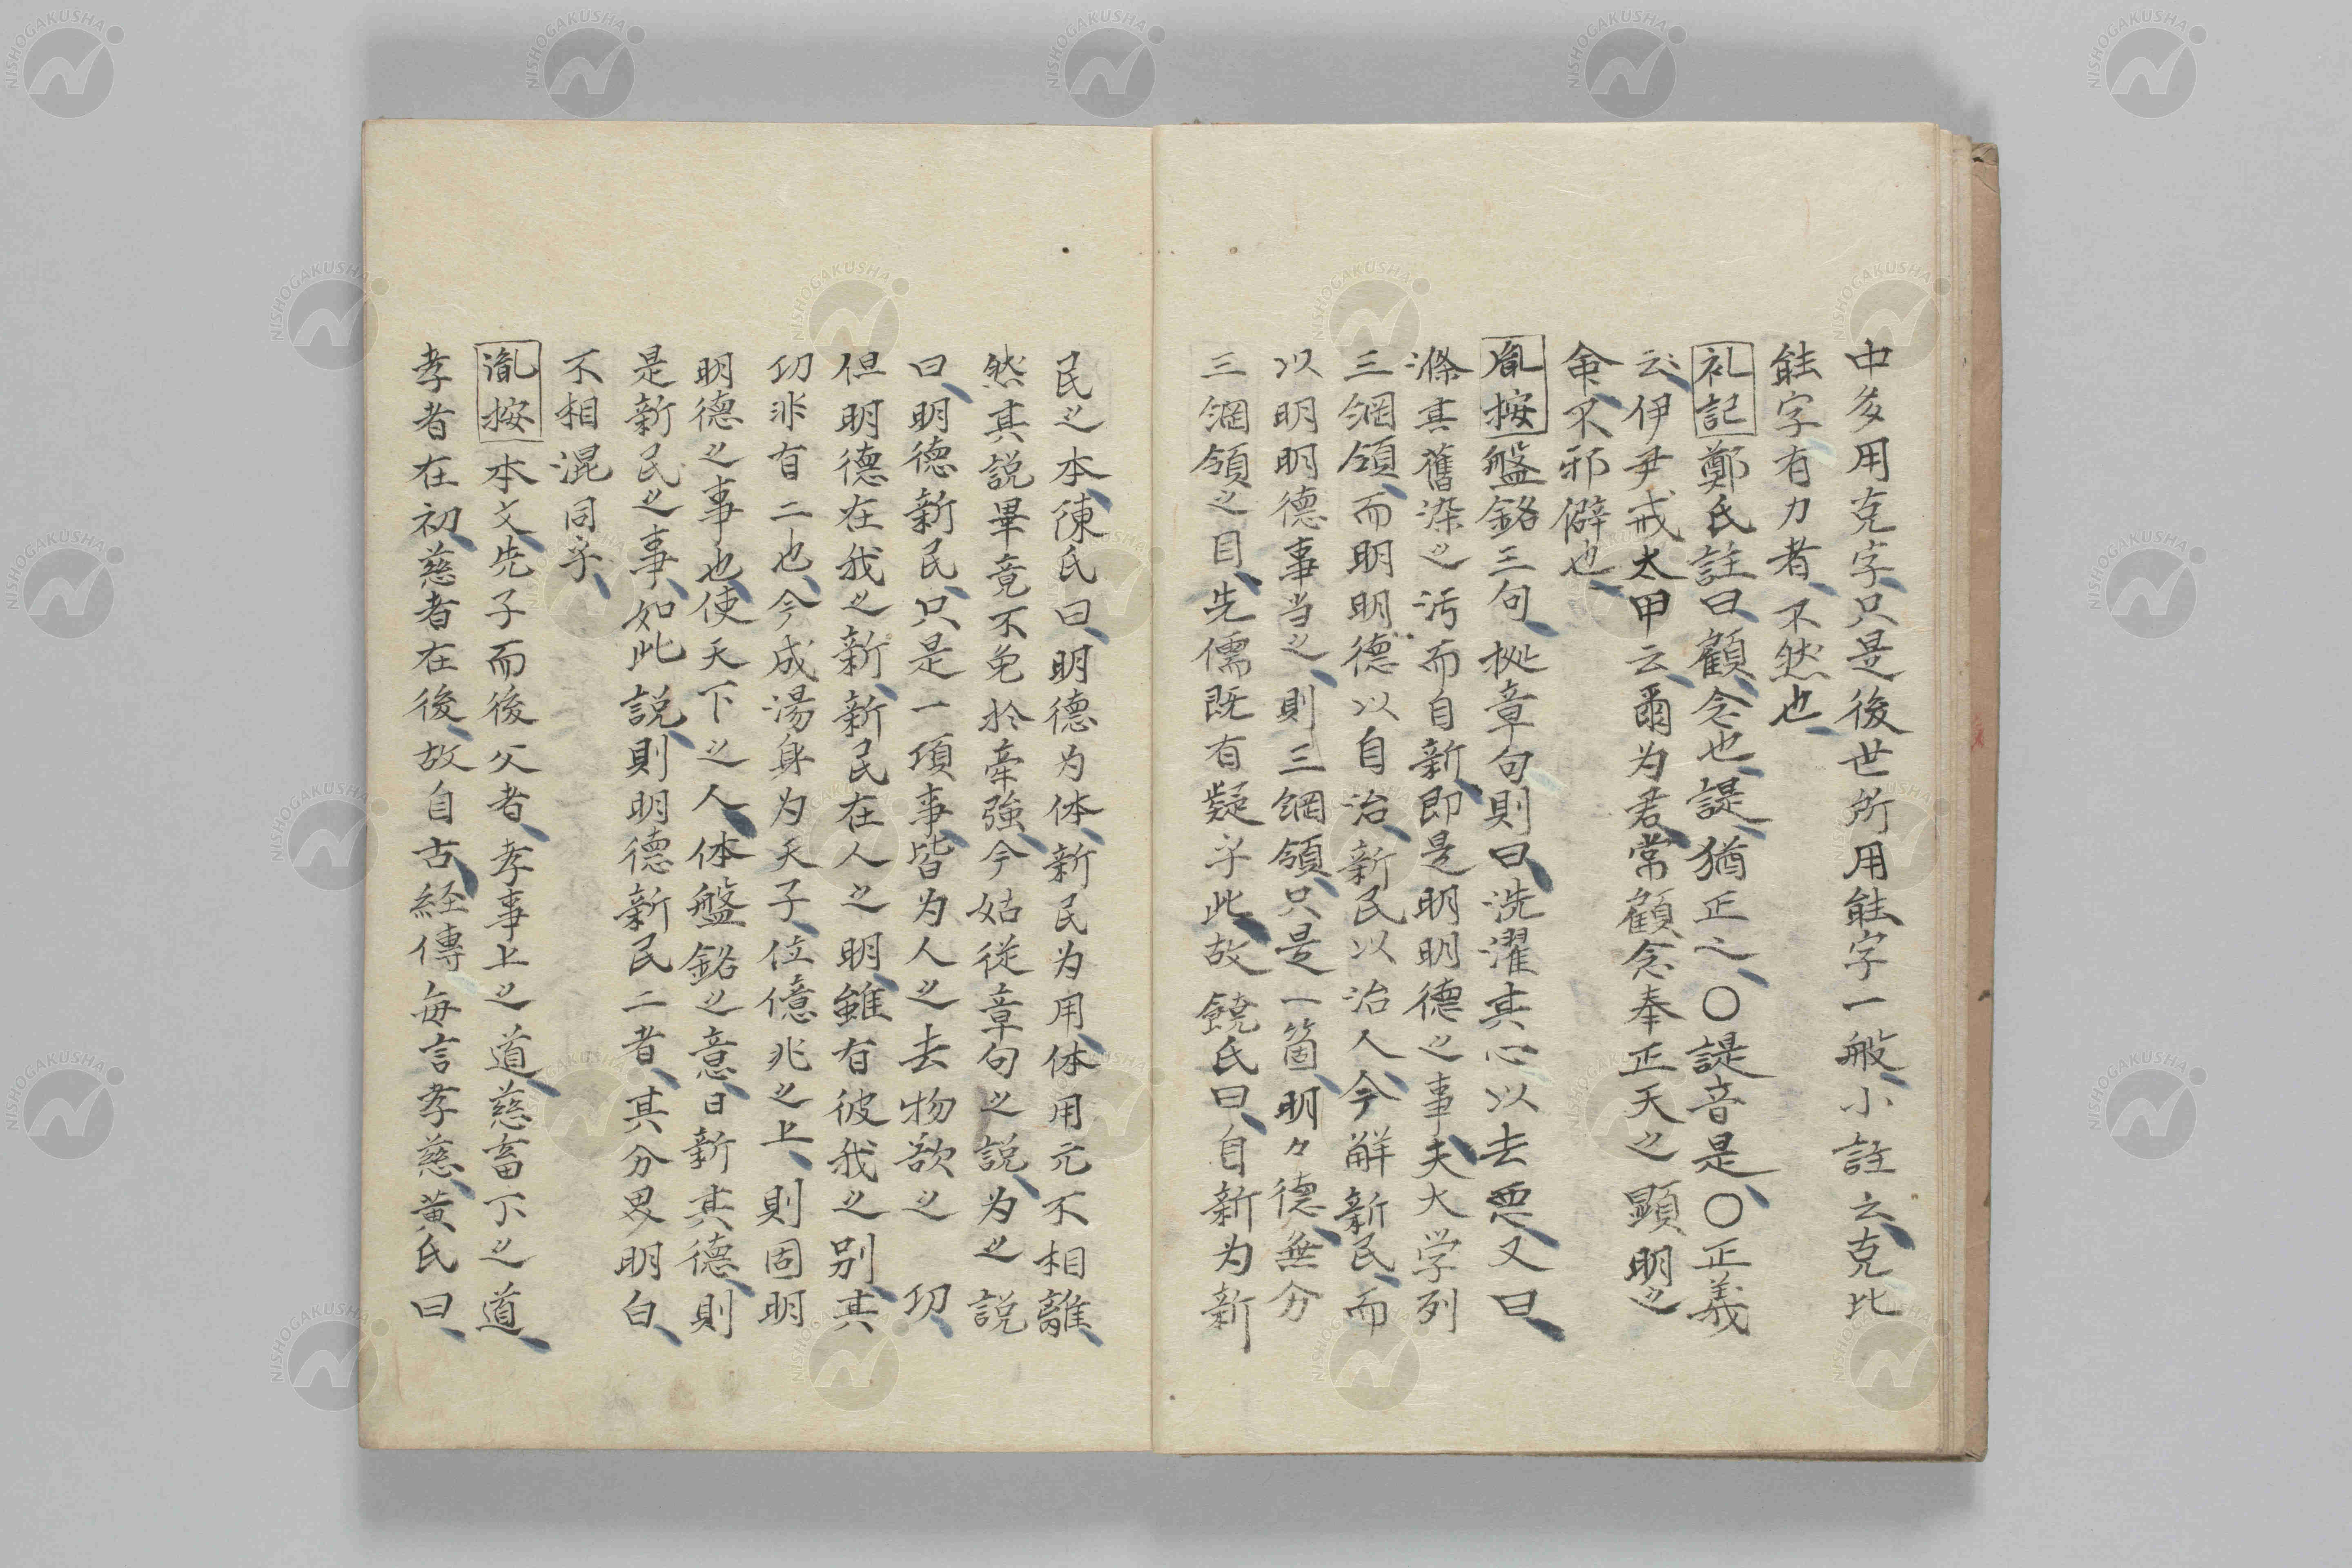 中多用克字只是後世所用能字一般小註云克比
能字有力者不然也
礼記鄭氏註曰顧念也諟猶正之〇諟音是〇正義
云伊尹戒太甲云爾为君常顧念奉正天之顕明之
命不邪僻也
胤按盤銘三句拠章句則曰洗濯其心以去悪又曰
滌其舊染之汚而自新即是明明德之事夫大学列
三綱領而明明德以自治新民以治人今解新民而
以明明德事当之則三綱領只是一箇明々德無分
三綱領之目先儒既有疑乎此故饒氏曰自新为新
民之本陳氏曰明德为体新民为用体用元不相離
然其説畢竟不免於牽強今姑従章句之説为之説
曰明德新民只是一項事皆为人之去物欲之功
但明德在我之新新民在人之明雖有彼我之別其
功非有二也今成湯身为天子位億兆之上則固明
明德之事也使天下之人体盤銘之意日新其德則
是新民之事如此説則明德新民二者其分界明白
不相混同乎
胤按本文先子而後父者孝事上之道慈畜下之道
孝者在初慈者在後故自古経傳每言孝慈黄氏曰
NISHOGAKUSHA